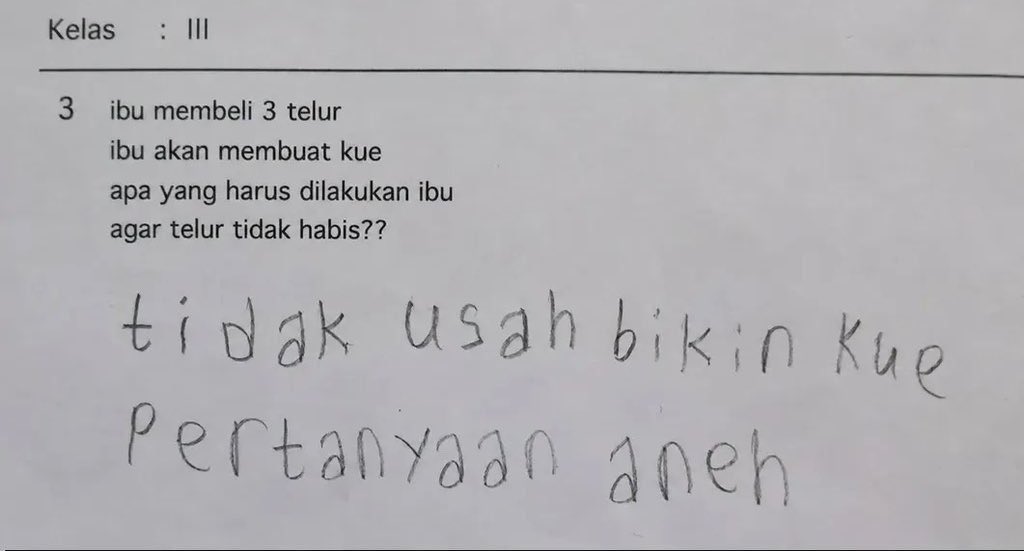 Kelas : III
3 ibu membeli 3 telur
ibu akan membuat kue
apa yang harus dilakukan ibu
agar telur tidak habis??
tidak usah bikin kue
Pertanyaan aneh